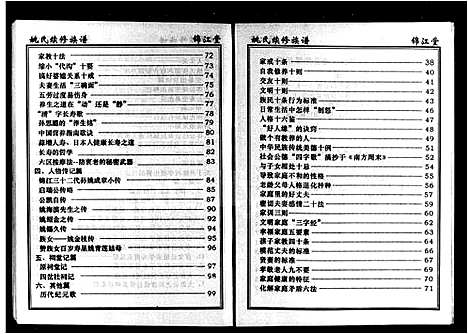 姚氏续修族谱 锦江堂
家教十法 72
缩小“代沟”十要 74
搞好婆媳关系十戒 74
夫妻生活“三镜面” 75
五劳过度易伤身 76
养生之道在“动”还是“静” 77
“清”字长寿歌 77
孙思邈的“养生铭” 77
中国营养指南歌诀 78
益增人寿、日本人健康长寿之道 78
长寿的哲学 79
六区按摩法--防衰老的秘密武器 80
四、人物传记篇
锦江三十二代孙姚成章小传 84
启瑞公传略 85
公凯自传 87
姚海滨先生之传 89
姚绍金之传 90
姚德久传 92
族女——姚金枝传 95
赞族女百岁寿星姚青莲姑母 96
五、祠堂记篇
原祠堂记 97
四盆壮祠记 98
六、其他篇
历代纪元歌 99
姚氏续修族谱 锦江堂
家戒十条 38
自我修养十则 40
交友十则 41
文明十则 41
族民十条行为标准 43
日常生活中怎样“制怒” 44
人格十六鉴 46
“好人缘”的诀窍 48
做个有教养的人 49
中华民族传统美德十例 50
社会公德“四字歌”摘抄于《南方周末》 52
与子女相处十忌 54
导致家庭不和的性格 55
忠龄父母人格退化种种 56
家庭里的好丈夫 59
密切夫妻感情二十法 60
家训三则 61
文明家庭“三字经” 62
幸福家庭五要素 63
孩子家教四十条 64
模范丈夫的标准 66
贤妻的标准 68
孝敬老人九不要 69
家庭健康的特征 70
化解家庭矛盾六法 71